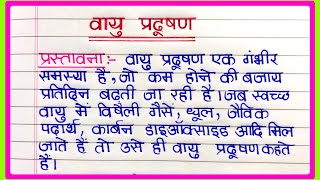 वायु प्रदूषण
प्रस्तावना:- वायु प्रदूषण एक गंभीर
समस्या है, जो कम होने की बजाय
प्रतिदिन बढ़ती जा रही है। जब स्वच्छ
वायु में विषैली गैसें, धूल, जैविक
पदार्थ, कार्बन डाइआक्साइड आदि मिल
जाते हैं तो उसे ही वायु प्रदूषण कहते
हैं।